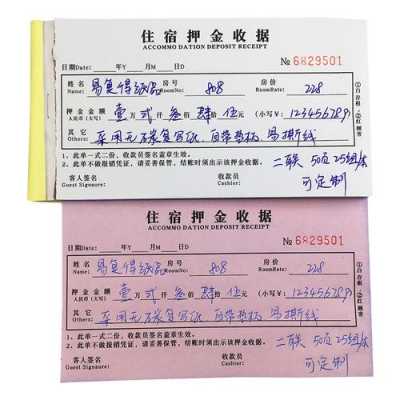 住宿押金收据
ACCOMMO DATION DEPOSIT RECEIPT
日期Date: 年Y 月M 日D № 6829501
姓名 Name: 易复得纸品 房号 808 房价 RoomRate: 228
押金金额 人民币(大写) 壹万贰仟叁佰肆拾伍元 (小写￥): 123456789
其它 Others: 采用无碳复写纸, 自带垫板 易撕线
1、此单一式二份, 收款员签名盖章生效。
2、此单不做报销凭证, 请妥善保管, 结账时须出示该押金收据。
二联 50页 25组/本
可定制
客人签名 Guest Signaure: 收款员 Cashier:
①白存根 ②红顾客
住宿押金收据
ACCOMMO DATION DEPOSIT RECEIPT
日期Date: 年Y 月M 日D № 6829501
姓名 Name: 易复得纸品 房号 808 房价 RoomRate: 228
押金金额 人民币(大写) 壹万贰仟叁佰肆拾伍元 (小写￥): 123456789
其它 Others: 采用无碳复写纸, 自带垫板 易撕线
1、此单一式二份, 收款员签名盖章生效。
2、此单不做报销凭证, 请妥善保管, 结账时须出示该押金收据。
二联 50页 25组/本
可定制
客人签名 Guest Signaure: 收款员 Cashier:
①白存根 ②红顾客